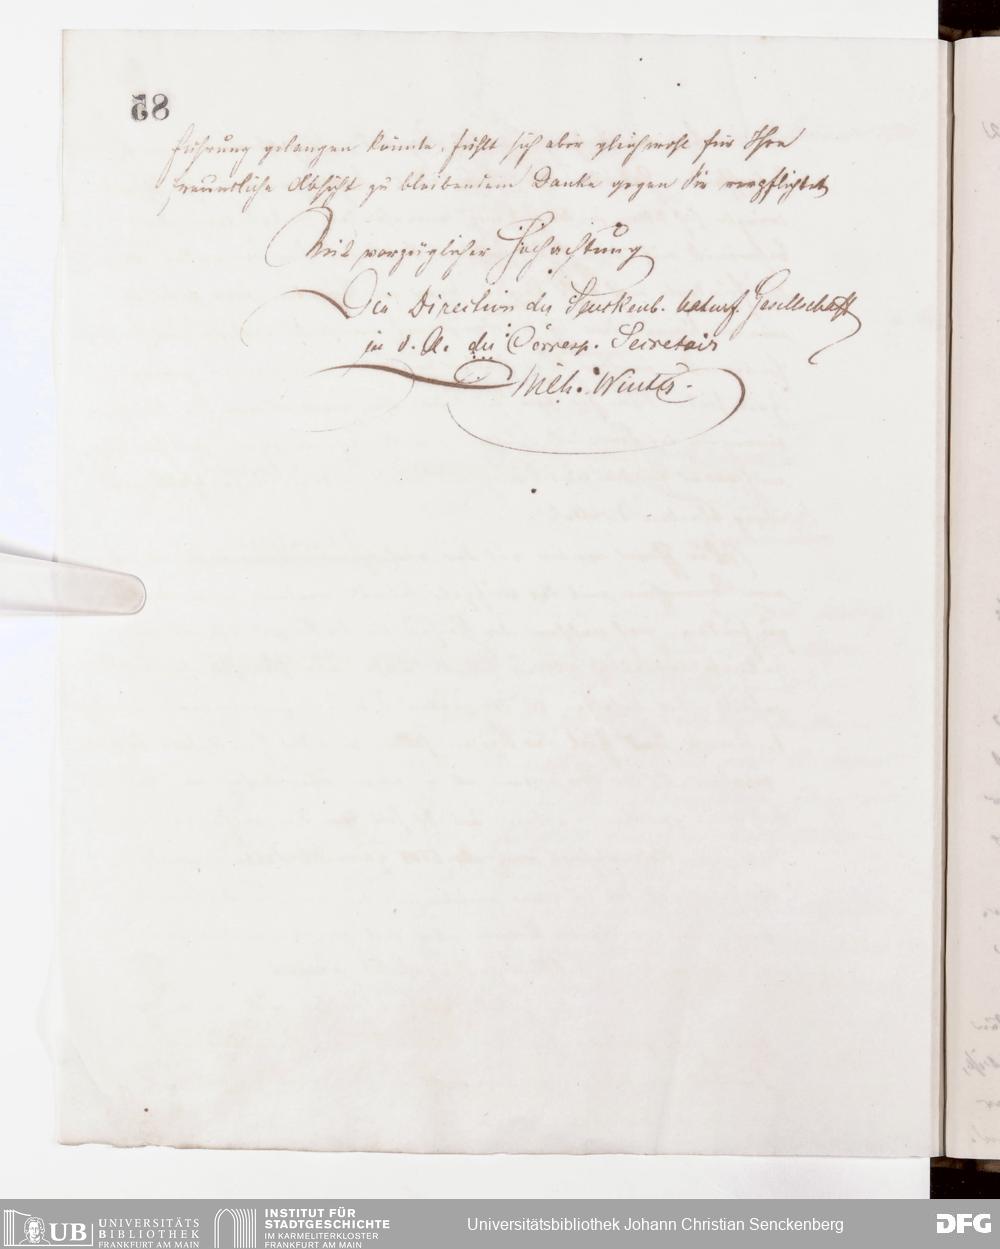 85
führung gelangen könnte, fühlt sich aber gleichwohl für Ihre
freundliche Absicht zu bleibendem Danke gegen Sie verpflichtet
Mit vorzüglicher Hochachtung
Die Direction der Senckenb. naturf. Gesellschaft
in d. A. der Corresp. Secretair
Wilh. Winter.
UB UNIVERSITÄTS
BIBLIOTHEK
FRANKFURT AM MAIN
INSTITUT FÜR
STADTGESCHICHTE
IM KARMELITERKLOSTER
FRANKFURT AM MAIN
Universitätsbibliothek Johann Christian Senckenberg
DFG